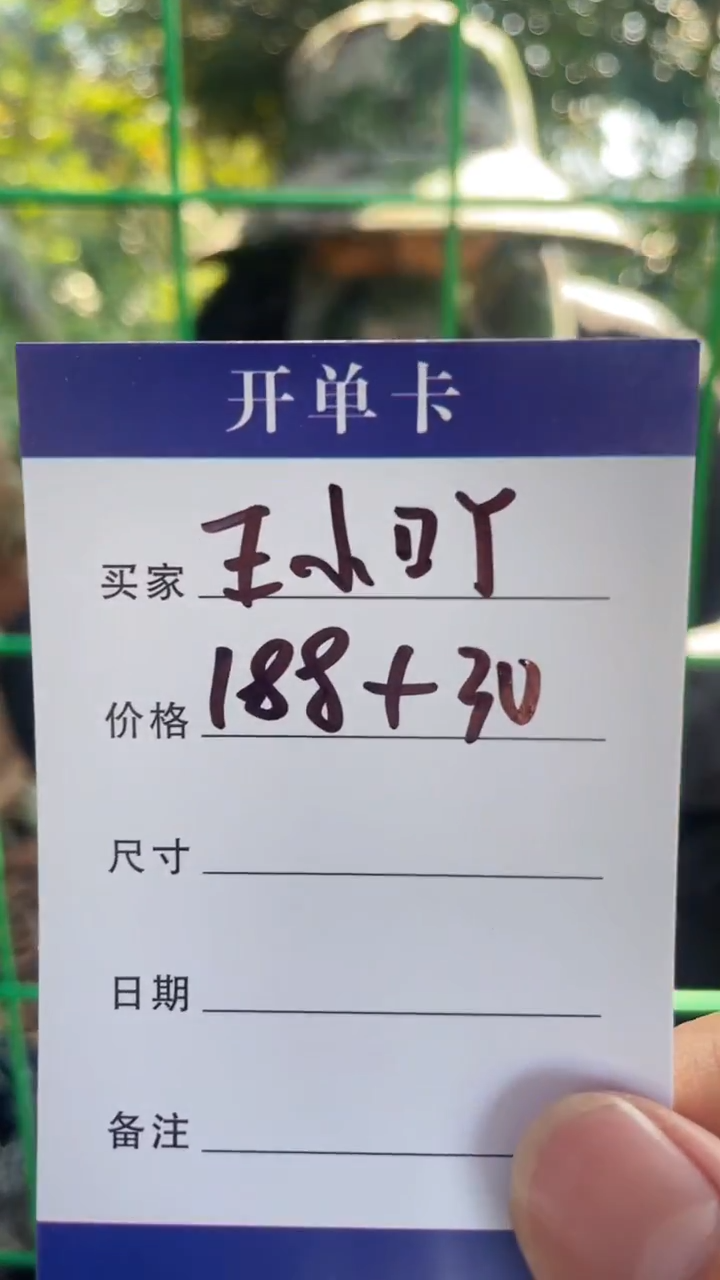 开单卡
买家 王小日丫
价格 188+30
尺寸
日期
备注